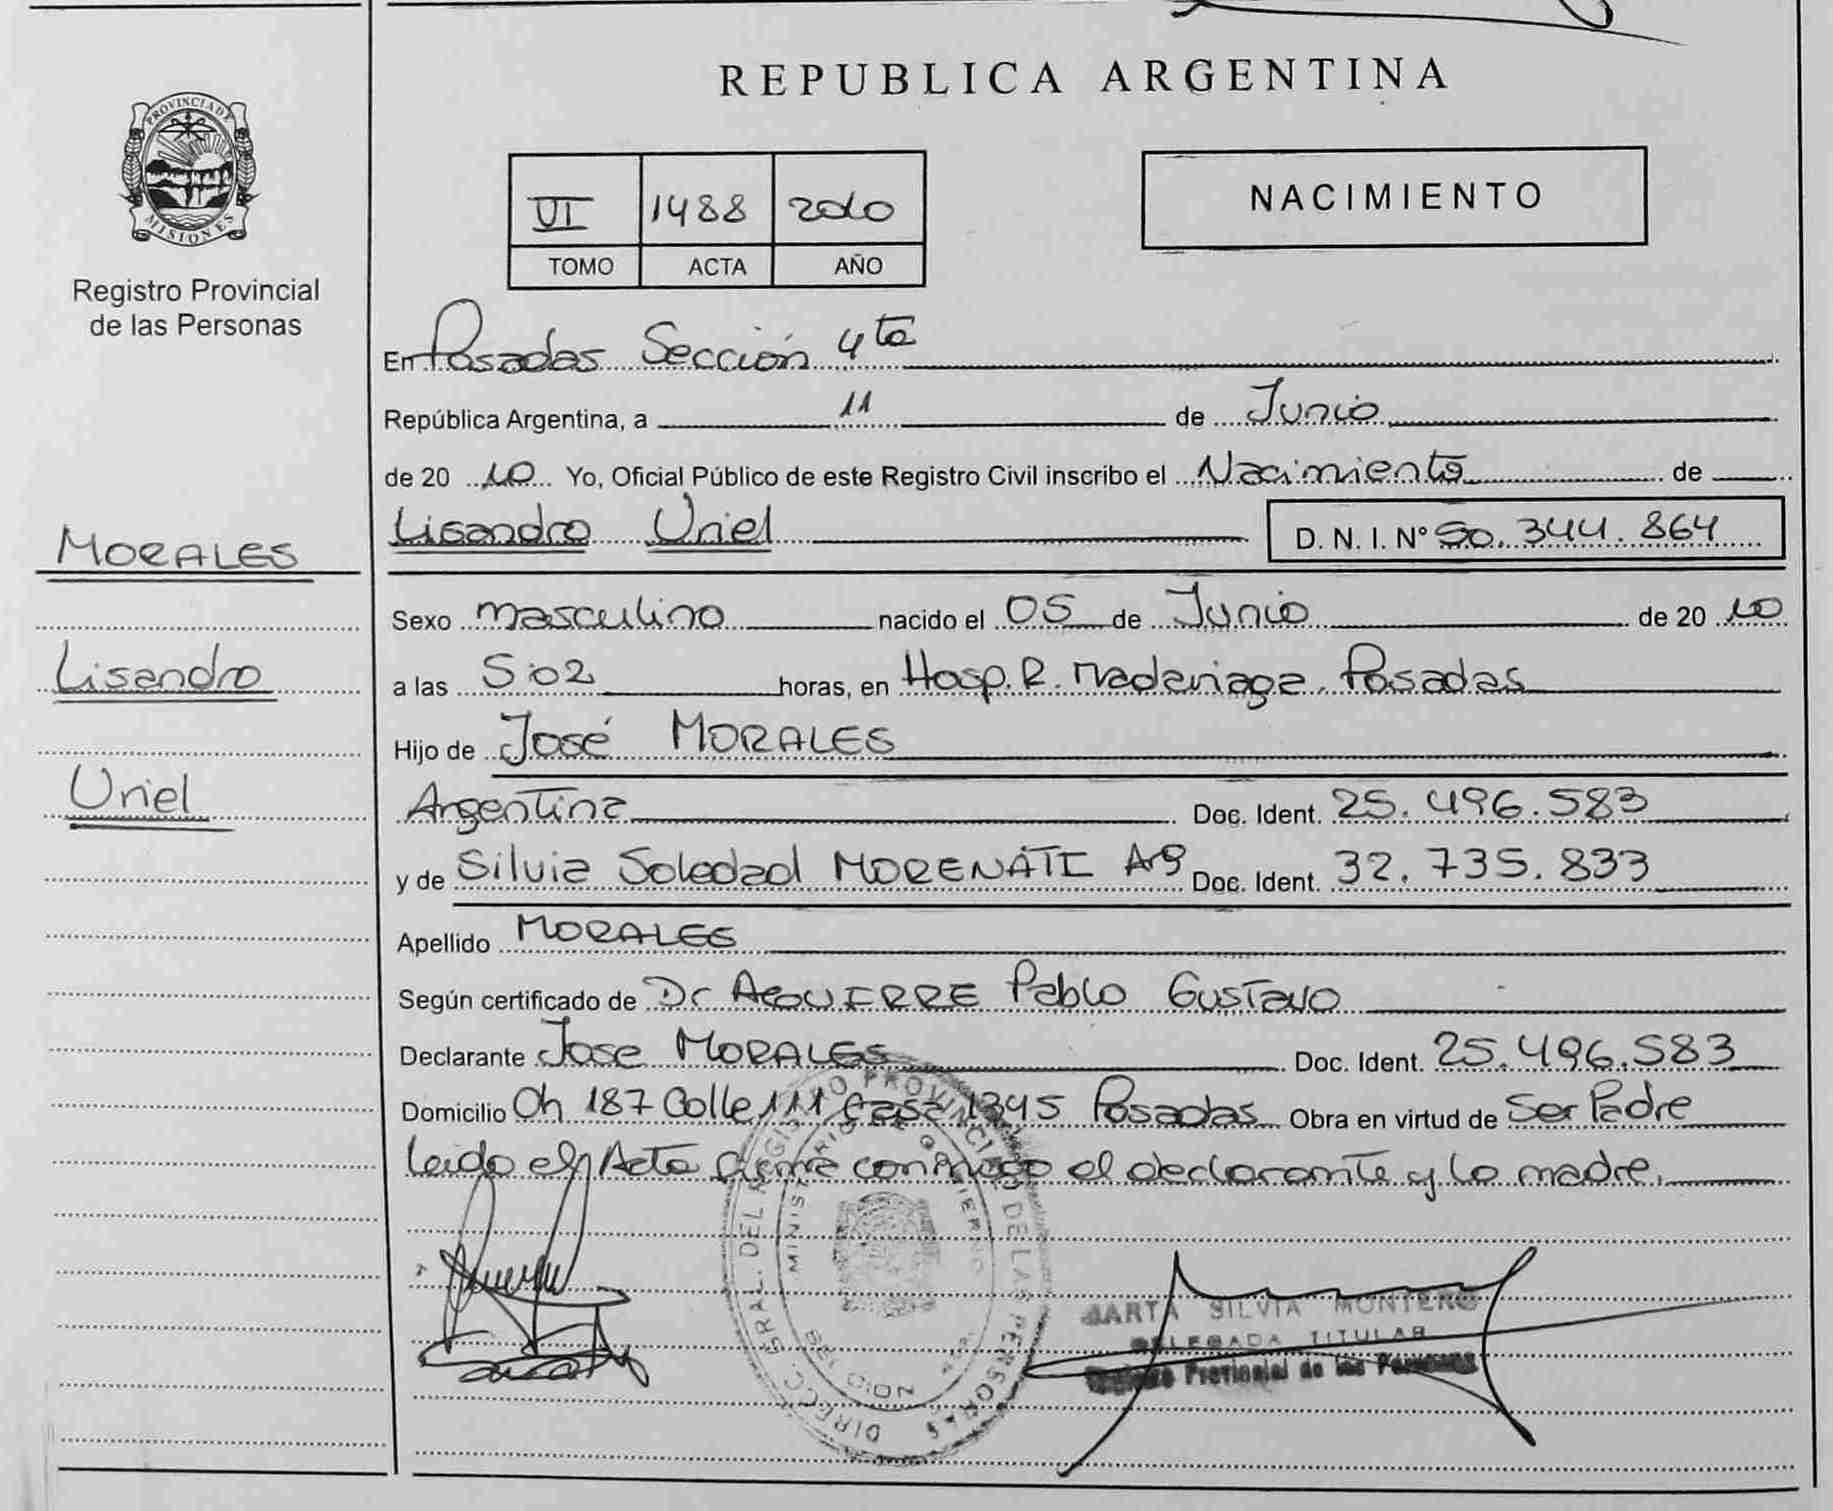 PROVINCIA DE
MISIONES
Registro Provincial
de las Personas
MORALES
Lisandro
Uriel
REPUBLICA ARGENTINA
VI 1488 2010
TOMO ACTA AÑO
NACIMIENTO
En Posadas Sección 4ta
República Argentina, a 11 de Junio
de 20 10 Yo, Oficial Público de este Registro Civil inscribo el Nacimiento de
Lisandro Uriel D. N. I. Nº 50.344.864
Sexo masculino nacido el 05 de Junio de 20 10
a las 5:02 horas, en Hosp. R. Madariaga. Posadas
Hijo de José MORALES
Argentina Doc. Ident. 25.496.583
y de Silvia Soledad MORENATI Doc. Ident. 32.735.833
Apellido MORALES
Según certificado de Dr AGUIERRE Pablo Gustavo
Declarante Jose MORALES Doc. Ident. 25.496.583
Domicilio Ch 187 Calle 111 Casa 1345 Posadas Obra en virtud de Ser Padre
Leido el Acta firma conmigo el declarante y la madre.
DIRECC. GRAL. DEL REGISTRO PROVINCIAL DE LAS PERSONAS
MINISTERIO DE GOBIERNO
MARTA SILVIA MONTERO
DELEGADA TITULAR
Registro Provincial de las Personas